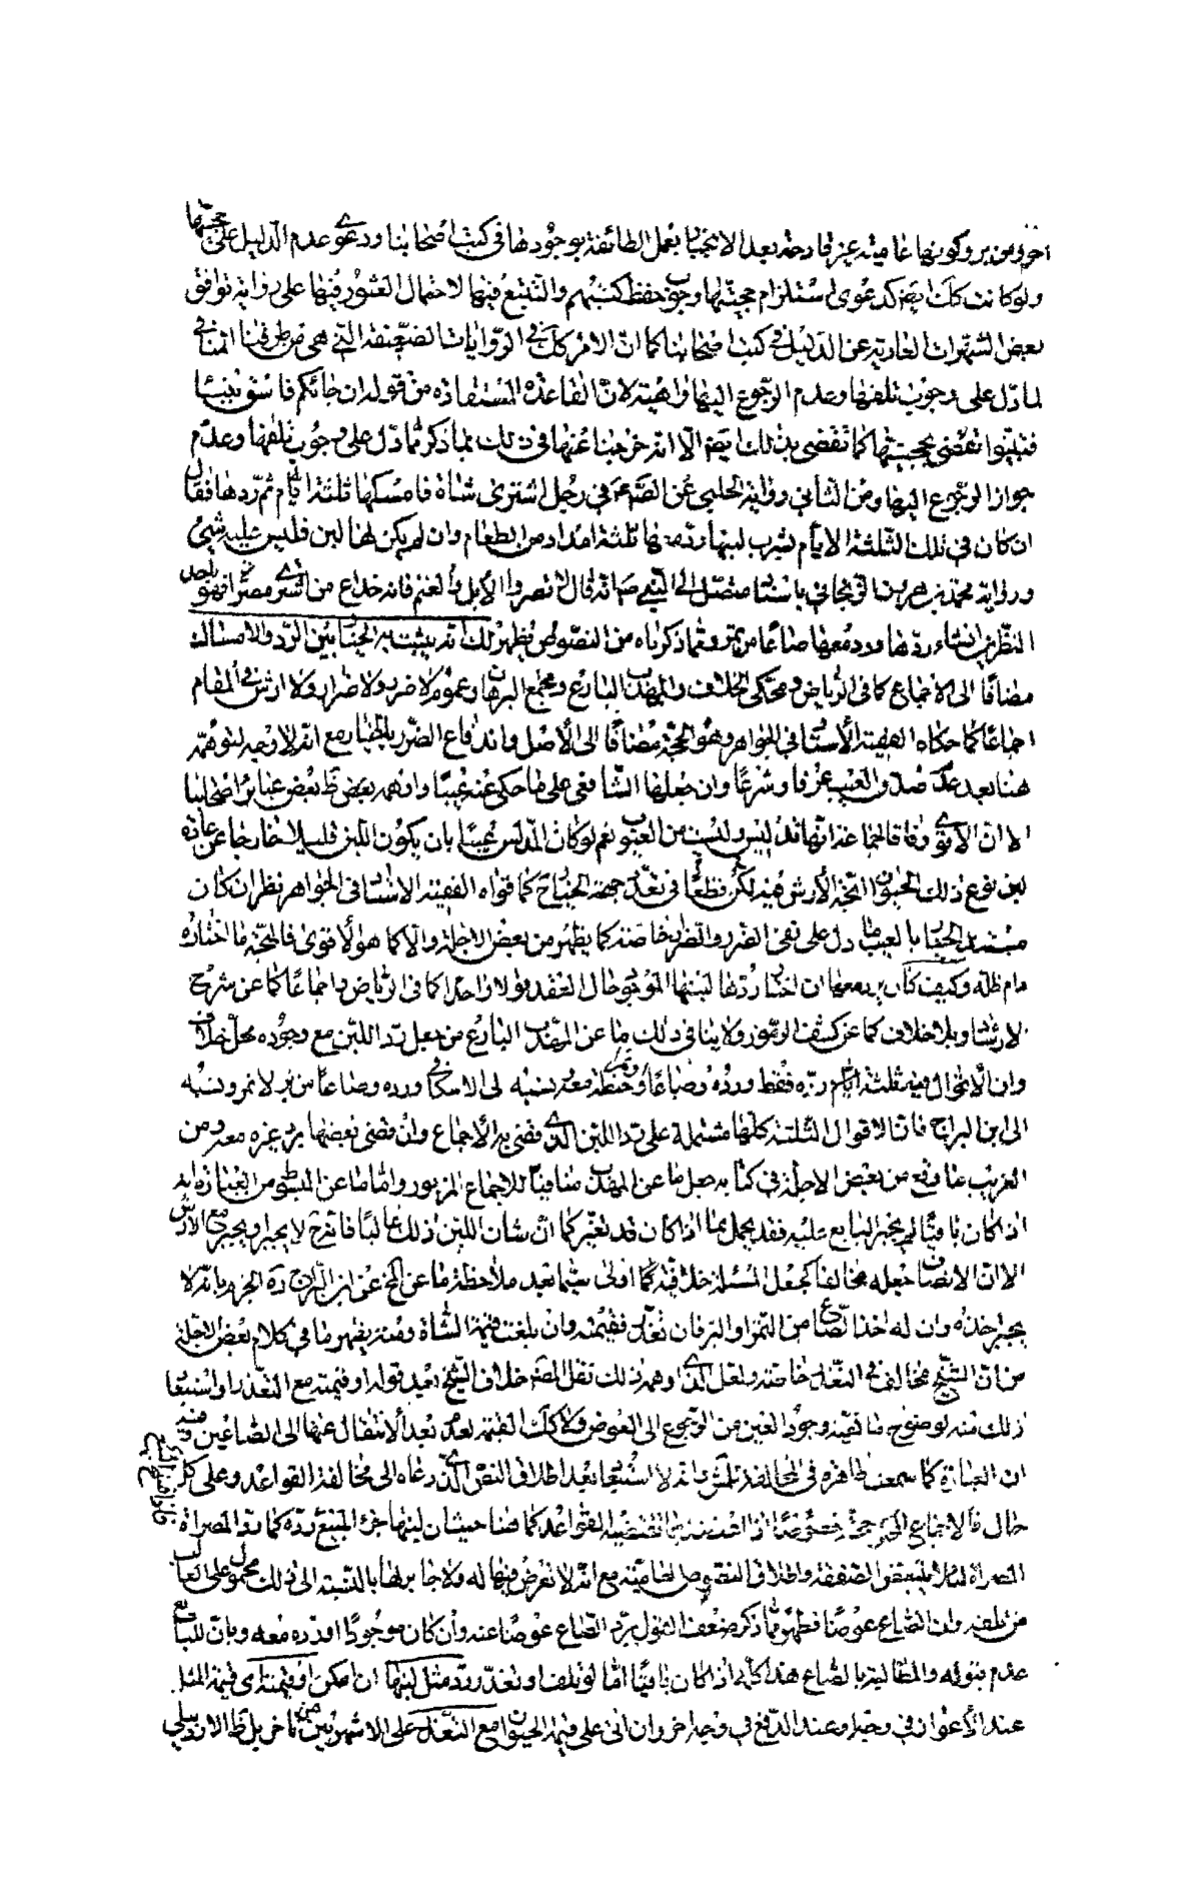 اخر ومن بر وكونها عامية غير قادحة بعد الانجبار بعمل الطائفة بوجودها في كتب اصحابنا ودعوى عدم الدليل على حجيتها
ولو كانت كك ايضا كدعوى استلزام حجيتها وجوب حفظ كتبهم والتتبع فيها لاحتمال العثور فيها على رواية توافق
بعض الشهرات العارية عن الدليل في كتب اصحابنا كما ان الامر كك في الروايات الضعيفة التي هي من طرقنا المنافي
لما دل على وجوب تلفها وعدم الرجوع اليها واهية لان القاعدة المستفادة من قوله ان جائكم فاسق بنبئا
فتبينوا تقضي بحجيتها كما تقضي بذلك ايضا الا انه خرجنا عنها في ذلك بما ذكر مما دل على وجوب تلفها وعدم
جواز الرجوع اليها ومن الثاني رواية الحلبي عن الصم في رجل اشترى شاة فامسكها ثلثة ايام ثم ردها فقال
ان كان في تلك الثلثة الايام يشرب لبنها رد معها ثلثة امداد من الطعام وان لم يكن لها لبن فليس عليه شيئ
ورواية محمد بن هرون الزنجاني باسناد متصل الى النبي ص انه قال لا تصروا الابل والغنم فانه خداع من اشترى مصراة فهو باحد
النظرين ان شاء ردها ورد معها صاعا من تمر ومما ذكرناه من النصوص يظهر لك انه يثبت به الخيار بين الرد والامساك
مضافا الى الاجماع كما في الرياض ومحكي الخلاف والمهذب البارع ومجمع البرهان وعموم لا ضرر ولا ضرار ولا ارش في المقام
اجماعا كما حكاه الفقيه الأستاد في الجواهر وهو الحجة مضافا الى الأصل واندفاع الضرر بالخيار مع انه لا وجه لتوهمه
هنا بعد عدم صدق العيب عرفا وشرعا وان جعلها الشافعي على ما حكي عنه عيبا واوهمه بعض ظ بعض عبائر اصحابنا
الا ان الاقوى وفاقا لجماعة انها تدليس وليست من العيوب نعم لو كان المدلس عيبا بان يكون اللبن قليلا خارجا عن عادة
لبن نوع ذلك الحيوان اتجه الأرش فيه لكن قطعا في تعدد جهة الخيار ح كما قواه الفقيه الاستاد في الجواهر نظر ان كان
مستند الخيار بالعيب ما دل على نفي الضرر والضرار خاصة كما يظهر من بعض الاجلة والا كما هو الأقوى فالمتجه ما اختاره
دام ظله وكيف كان يرد معها ان اختار ردها لبنها الموجود حال العقد قولا واحدا كما في الرياض واجماعا كما عن شرح
الارشاد وبلا خلاف كما عن كشف الرموز ولا ينافي ذلك ما عن المهذب البارع من جعل رد اللبن مع وجوده محل خلاف
وان الأقوال فيه ثلثة رده فقط ورده وصاعا من حنطة او تمر معه نسبه الى الاسكافي ورده وصاعا من بر لا تمر ونسبه
الى ابن البراج فان الاقوال الثلثة كلها مشتملة على رد اللبن الذي قضى به الأجماع وان قضى بعضها برد غيره معه ومن
الغريب ما وقع من بعض الاجلة في كتابه من جعل ما عن المهذب منافيا للاجماع المزبور واما ما عن المبسوط من العبارة انه
اذا كان باقيا لم يجبر البايع عليه فقد يحمل بما اذا كان قد تغير كما ان شان اللبن ذلك غالبا فانه ح لا يجبر او يجبر مع الارش
الا ان الانصاف جعله مخالفا كجعل المسئلة خلافية كما اولى سيما بعد ملاحظة ما عن الخ عن ابن البراج ره الجزم بانه لا
يجبر اخذه وان له اخذ صاع من التمر او البر فان تعذر فقيمته وان بلغت قيمة الشاة ومنه يظهر ما في كلام بعض الاجلة
من ان الشيخ مخالف في التعذر خاصة ولعل الذي اوهمه ذلك نقل المص خلاف الشيخ بعد قوله او قيمته مع التعذر او استبعاد
ذلك منه لوضوح منافية وجود العين من الرجوع الى العوض ولا كك القيمة بعد الانتقال عنها الى الصاعين وفيه
ان العبارة كما سمعت ظاهرة في المخالفة وانه لا استبعاد بعد اطلاق النص الذي دعاه الى مخالفة القواعد وعلى كل
حال فالاجماع المحكي حجة خصوصا اذا اعتضد بما تقتضيه القواعد كما هنا حيث ان لبنها جزء المبيع رده كما رد المصراة
المصراة لئلا يتبعض الصفقة واطلاق النصوص العامية مع انه لا تعرض فيها له ولا جابر لها بالنسبة الى ذلك محمول على الغالب
من تلفه وان الصاع عوضا فظهر مما ذكر ضعف القول برد الصاع عوضا عنه وان كان موجودا او رده معه وبان للبايع
عدم قبوله والمطالبة بالصاع هذا كله اذا كان باقيا اما لو تلف او تعذر رد مثل لبنها ان امكن او قيمته اي قيمة المثل
عند الأعواز في وجه وعند الدفع في وجه اخر وان اتى على قيمة الحيوان مع التعذر على الاشهر بين من تاخر بل ظ الاردبيلي